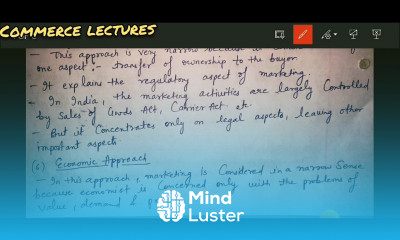 COMMERCE LECTURES
- This approach is very narrow because it
one aspect :- transfer of ownership to the buyer
- It explain the regulatory aspect of marketing.
- In India, the marketing activities are largely Controlled
by Sales of Goods Act, Carrier Act etc
- But it Concentrates only on legal aspects, leaving other
important aspects
(6) Economic Approach
- In this approach, marketing is Considered in a narrow Sense
because economist is Concerned only with the problems of
value, demand &
Mind
Luster